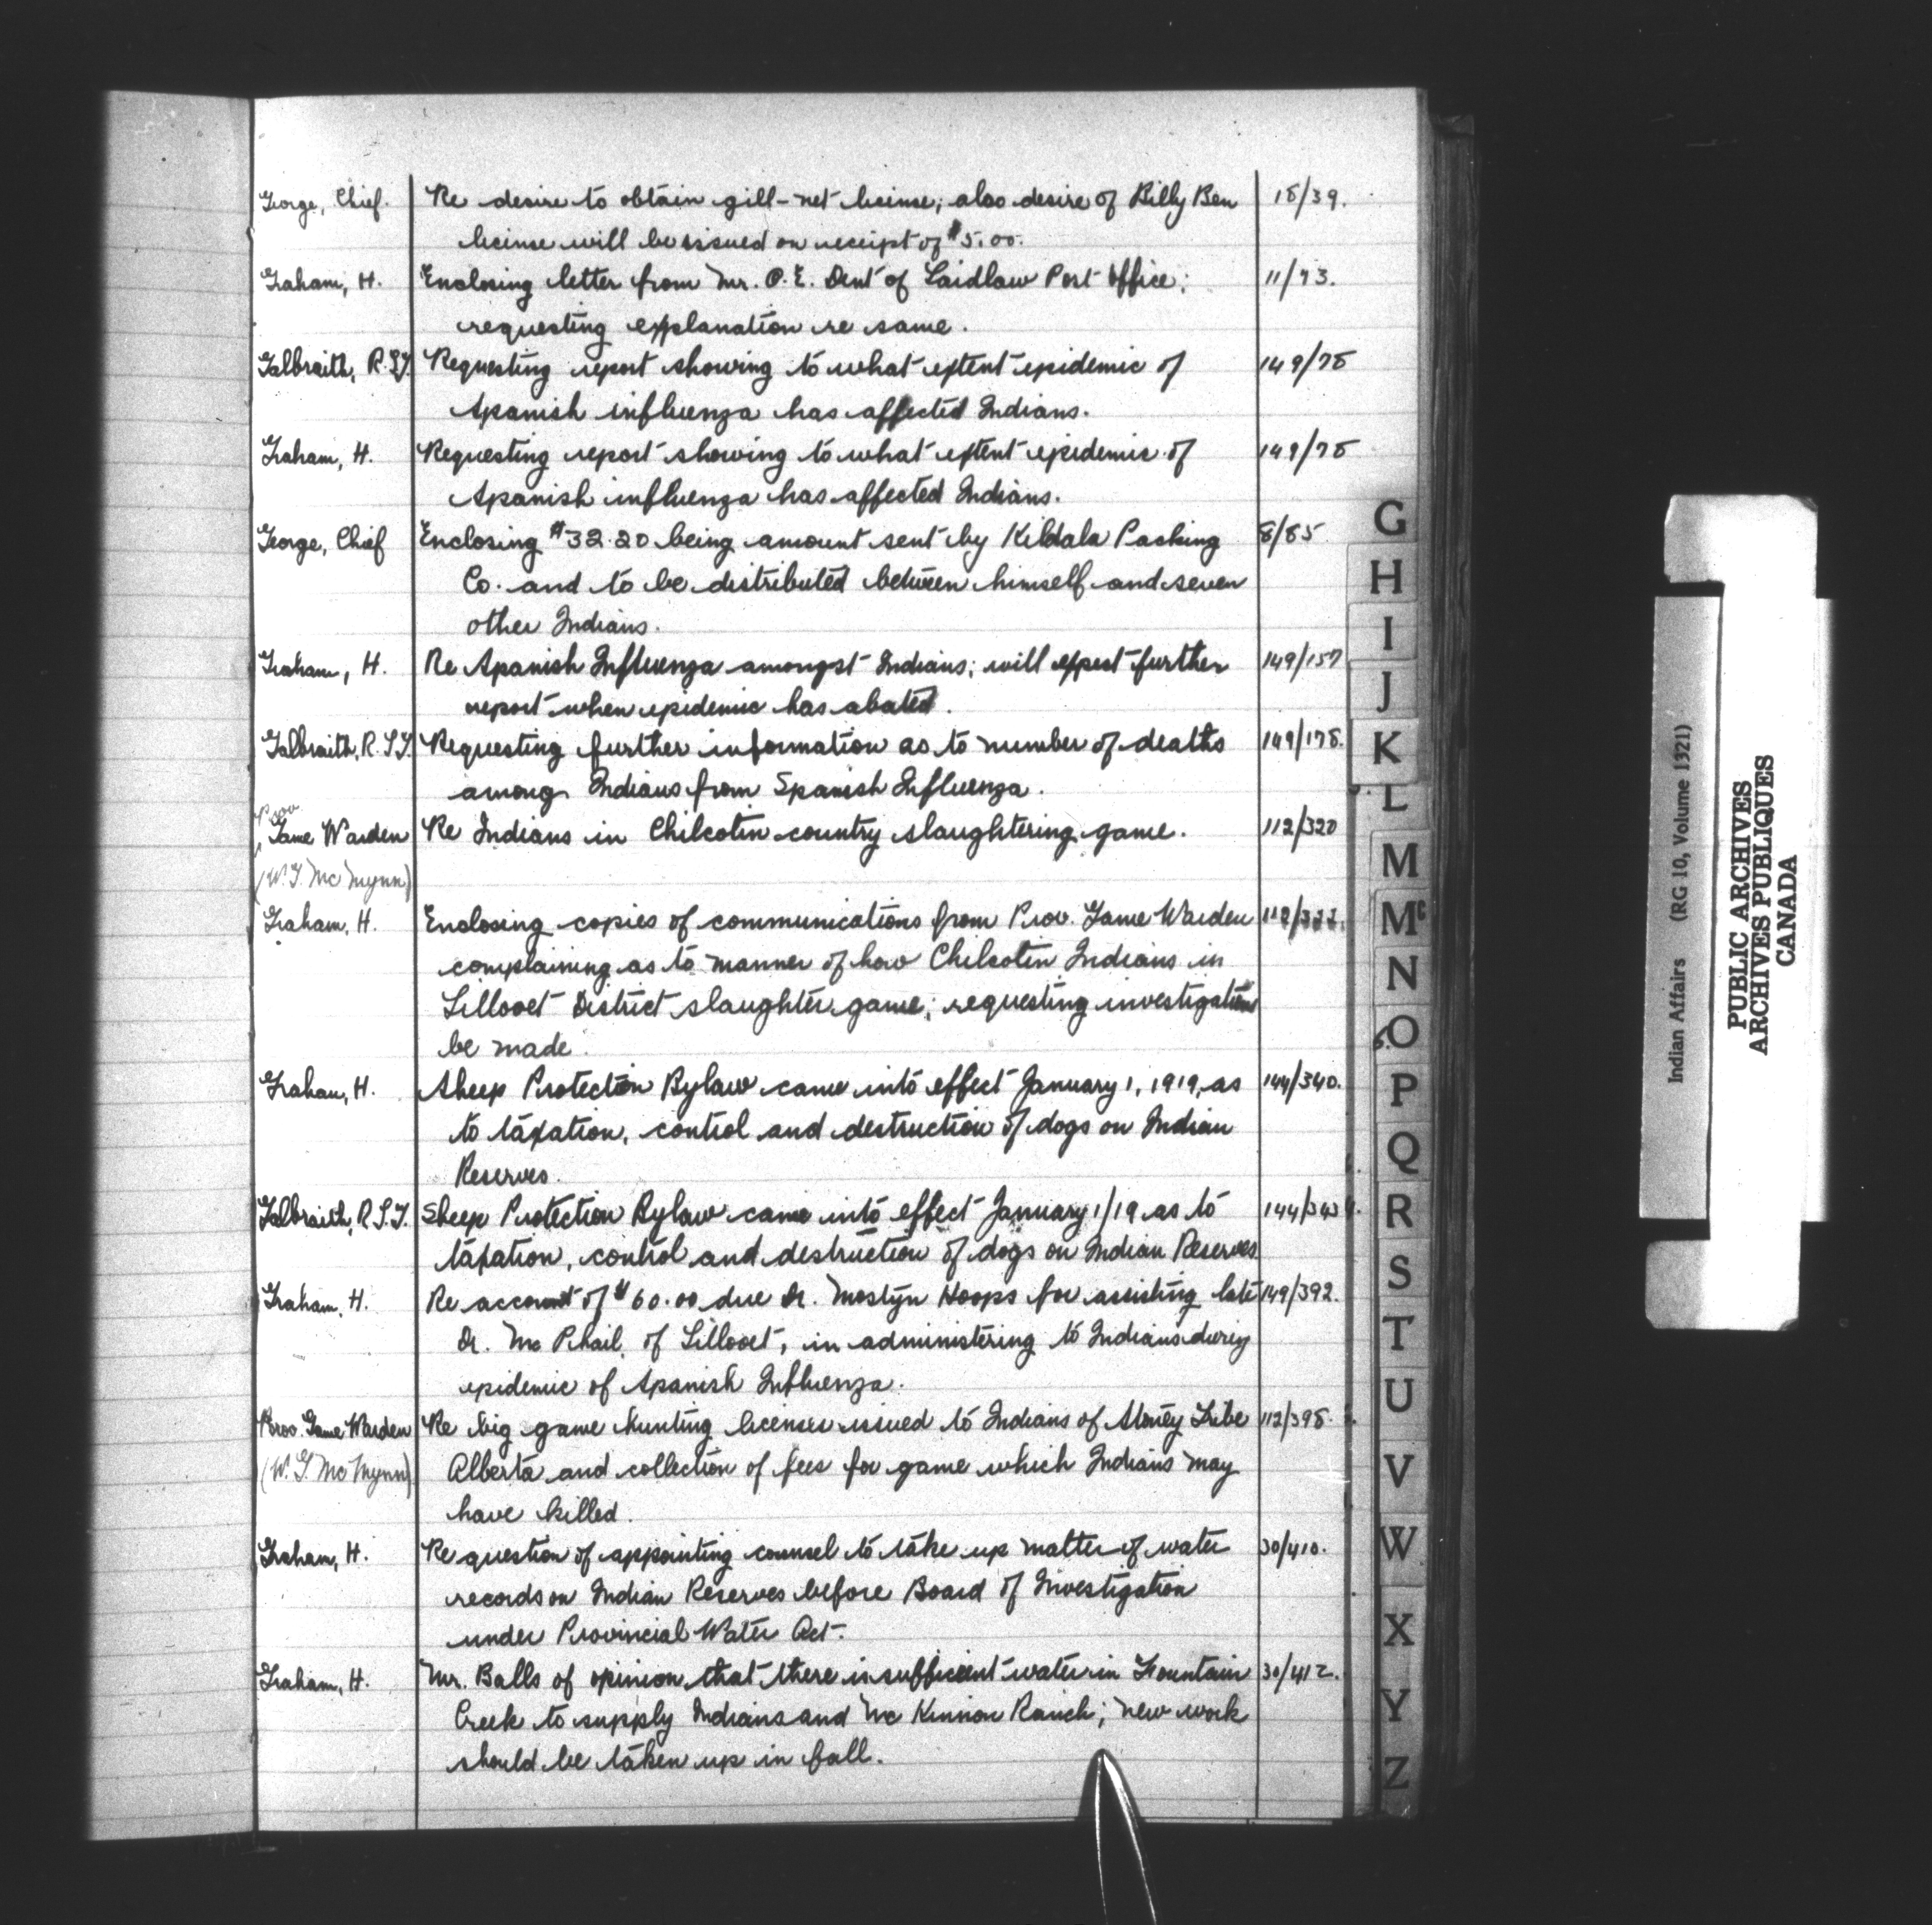 George, Chief. Re desire to obtain gill-net license; also desire of Billy Ben 18/39.
license will be issued on receipt of $5.00.
Graham, H. Enclosing letter from Mr. O. E. Dent of Laidlaw Post Office; 11/73.
requesting explanation re same.
Galbraith, R.L.T. Requesting report showing to what extent epidemic of 149/78
Spanish influenza has affected Indians.
Graham, H. Requesting report showing to what extent epidemic of 149/78
Spanish influenza has affected Indians.
George, Chief Enclosing $32.20 being amount sent by Kildala Packing 8/85
Co. and to be distributed between himself and seven
other Indians.
Graham, H. Re Spanish Influenza amongst Indians; will expect further 149/157
report when epidemic has abated.
Galbraith, R.L.T. Requesting further information as to number of deaths 149/178.
among Indians from Spanish Influenza.
Prov.
Game Warden Re Indians in Chilcotin country slaughtering game. 112/320
(W.G. McMynn)
Graham, H. Enclosing copies of communications from Prov. Game Warden 112/322.
complaining as to manner of how Chilcotin Indians in
Lillooet District slaughter game; requesting investigation
be made.
Graham, H. Sheep Protection Bylaw came into effect January 1, 1919, as 144/340.
to taxation, control and destruction of dogs on Indian
Reserves.
Galbraith, R.L.T. Sheep Protection Bylaw came into effect January 1/19 as to 144/343
taxation, control and destruction of dogs on Indian Reserves
Graham, H. Re account of $60.00 due Dr. Mostyn Hoops for assisting late 149/392.
Dr. McPhail of Lillooet, in administering to Indians during
epidemic of Spanish Influenza.
Prov. Game Warden Re big game hunting licenses issued to Indians of Stoney Tribe 112/398.
(W.G. McMynn) Alberta and collection of fees for game which Indians may
have killed.
Graham, H. Re question of appointing counsel to take up matter of water 30/410.
records on Indian Reserves before Board of Investigation
under Provincial Water Act.
Graham, H. Mr. Balls of opinion that there is sufficient water in Fountain 30/412.
Creek to supply Indians and McKinnon Ranch; new work
should be taken up in fall.
G
H
I
J
K
L
M
Mc
N
O
P
Q
R
S
T
U
V
W
X
Y
Z
Indian Affairs (RG 10, Volume 1321)
PUBLIC ARCHIVES
ARCHIVES PUBLIQUES
CANADA